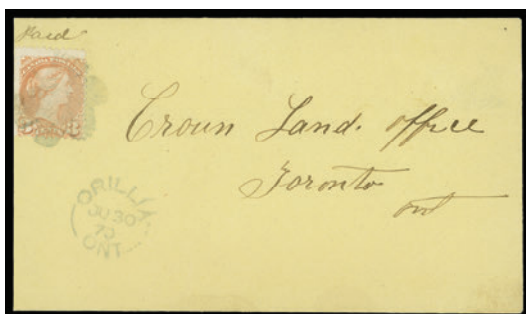 Paid
Crown Land. office
Toronto
ont
ORILLIA
JU 30
ONT.